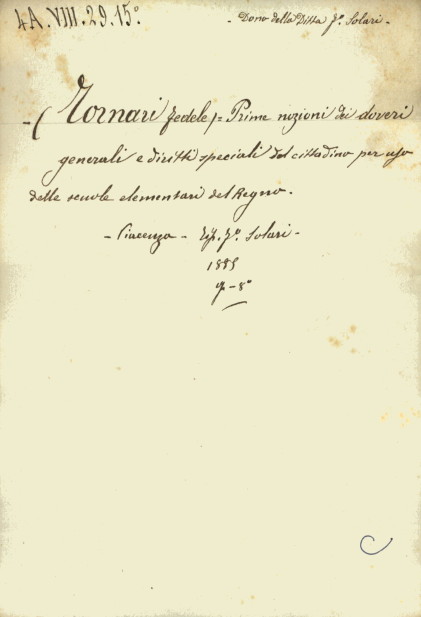 4A.VIII.29.15°
- Dono della Ditta Fº. Solari -
- ( Tornari Fedele ) = Prime nozioni dei doveri
generali e diritti speciali del cittadino per uso
delle scuole elementari del Regno.
- Piacenza - Tip. Fº. Solari -
1885
- 8°